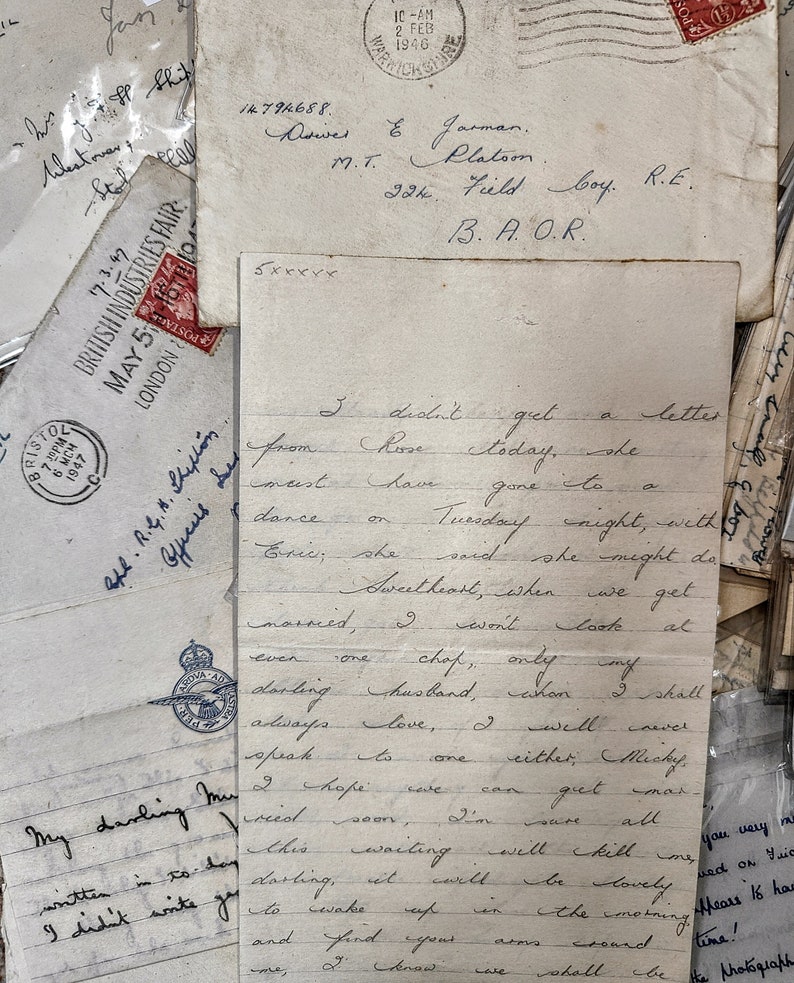 10-AM
2 FEB
1946
WARWICKSHIRE
POSTAGE
1½
14794688.
Driver E Jarman.
M.T. Platoon.
224 Field Coy. R.E.
B.A.O.R.
Jan 2
Mrs J H Ship
Westover,
7.3.47
BRITISH INDUSTRIES FAIR.
MAY 5-16 1947
LONDON
POSTAGE
BRISTOL
7-PM
6 MCH
1947
C
R.G.H. Shipton.
PER ARDVA AD ASTRA
My darling Mu
written in to-day
I didn't write
5xxxxx
I didn't get a letter
from Rose today, she
must have gone to a
dance on Tuesday night, with
Eric; she said she might do.
Sweetheart, when we get
married, I won't look at
even one chap, only my
darling husband, whom I shall
always love, I will never
speak to one either, Micky,
I hope we can get mar-
ried soon, I'm sure all
this waiting will kill me,
darling, it will be lovely
to wake up in the morning,
and find your arms round
me, I know we shall be
you very m
ved on
appears to ha
time!
the photograph